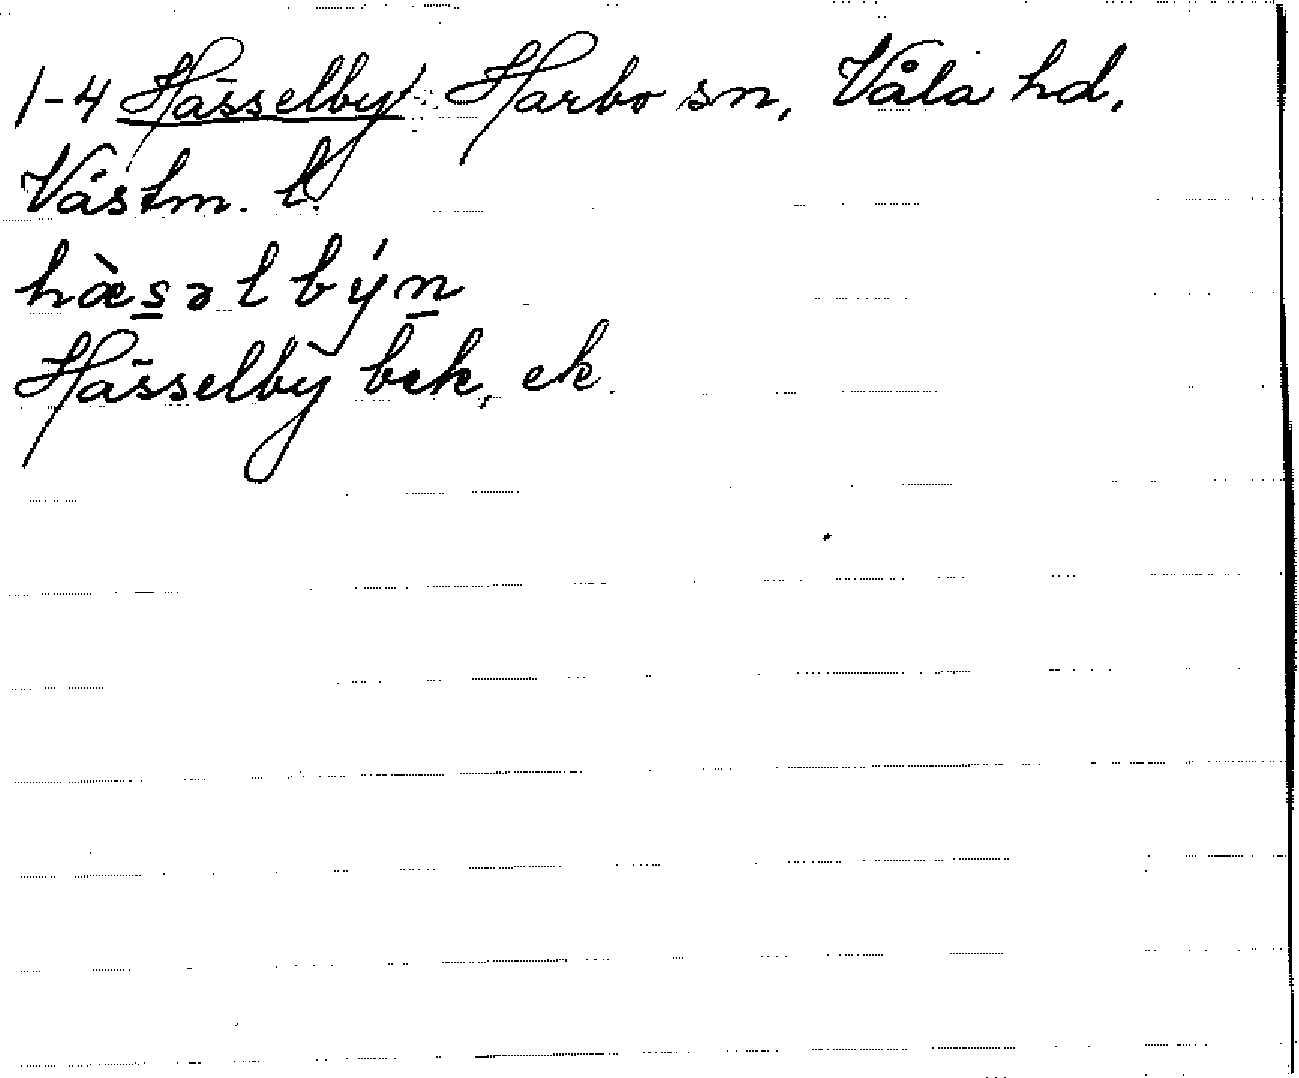 1-4 Hässelby Harbo sn, Våla hd,
Västm. l.
hæ̀s̲əl býn̲
Hässelby bek, ek.